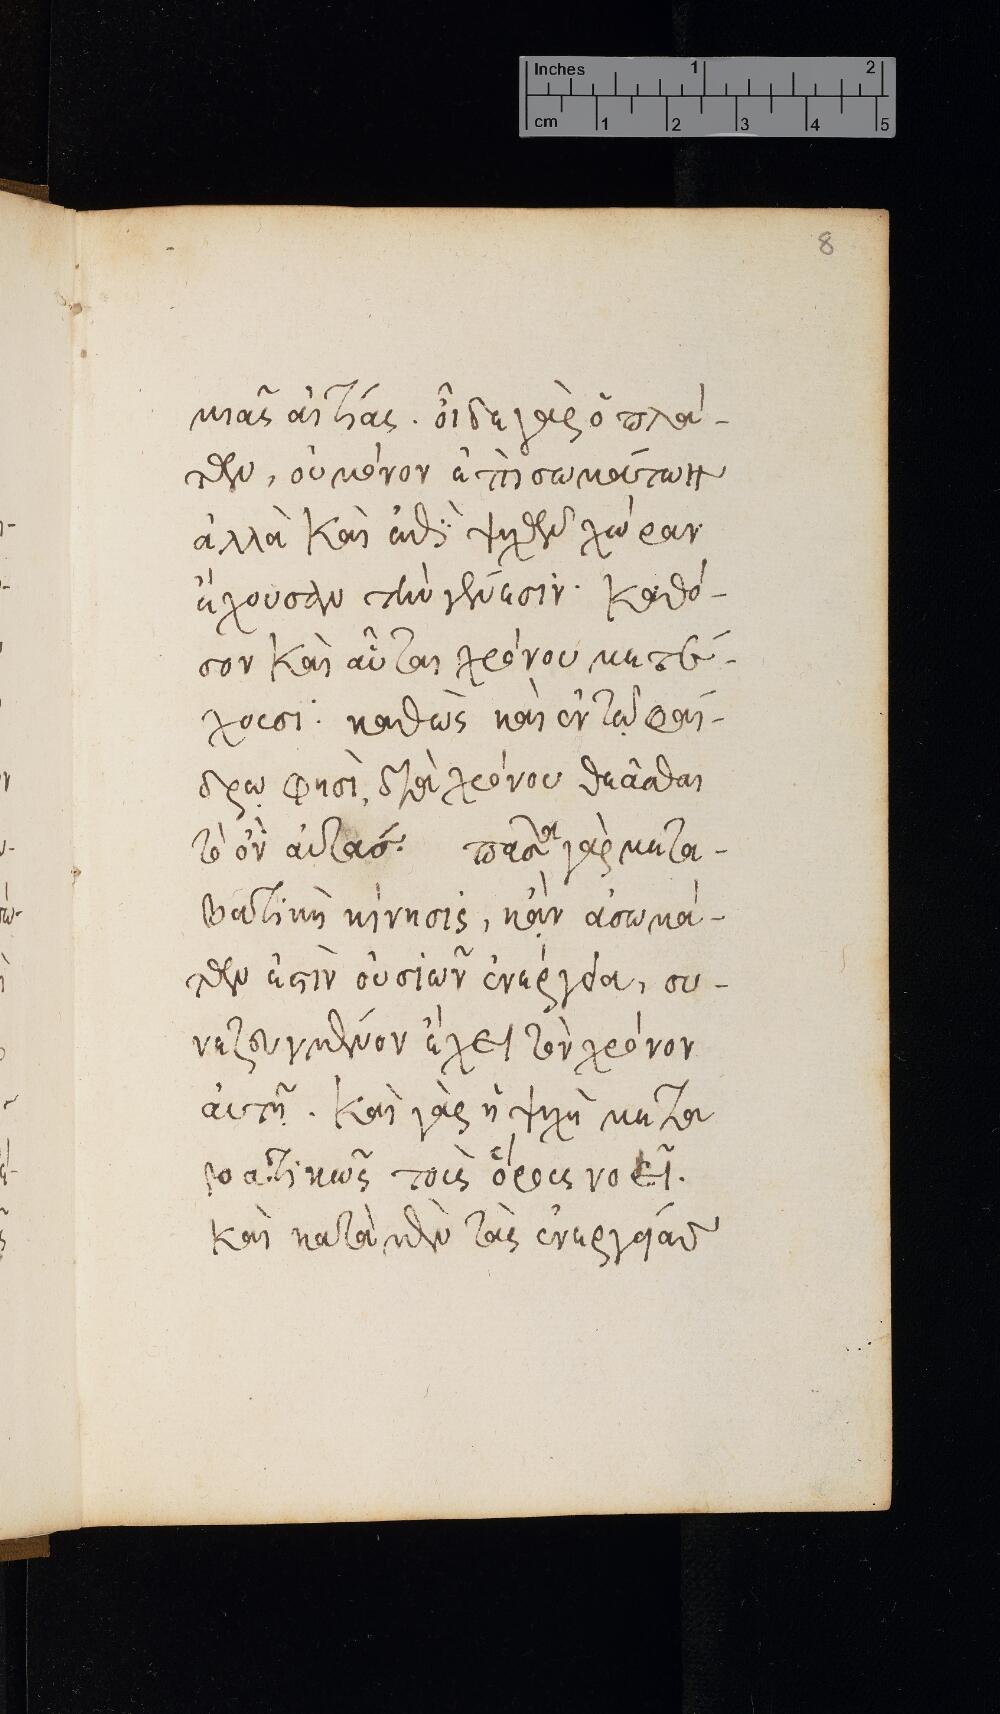 Inches 1 2
cm 1 2 3 4 5
8
μιᾶς αἰτίας. οἶδε γὰρ ὁ πλά-
των, οὐ μόνον ἐπὶ σωμάτων
ἀλλὰ καὶ ἐπὶ ψυχῶν χώραν
ἔχουσαν τὴν γένεσιν. καθό-
σον καὶ αὗται χρόνου μετέ-
χουσι. καθὼς καὶ ἐν τῷ φαί-
δρῳ φησὶ, διὰ χρόνου θεᾶσθαι
τὸ ὂν αὐτάς. πᾶσα γὰρ μετα-
βατικὴ κίνησις, κἂν ἀσωμά-
των ἐστὶν οὐσιῶν ἐνέργεια, συ-
νεζευγμένον ἔχει τὸν χρόνον
αὐτῇ. καὶ γὰρ ἡ ψυχὴ μετα-
βατικῶς τοὺς ὅρους νοεῖ.
καὶ κατὰ τὰς ἐνεργείας